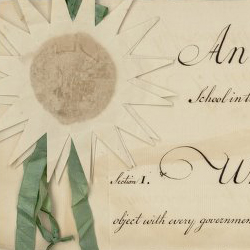 An
School in t
Section 1. W
object with every government